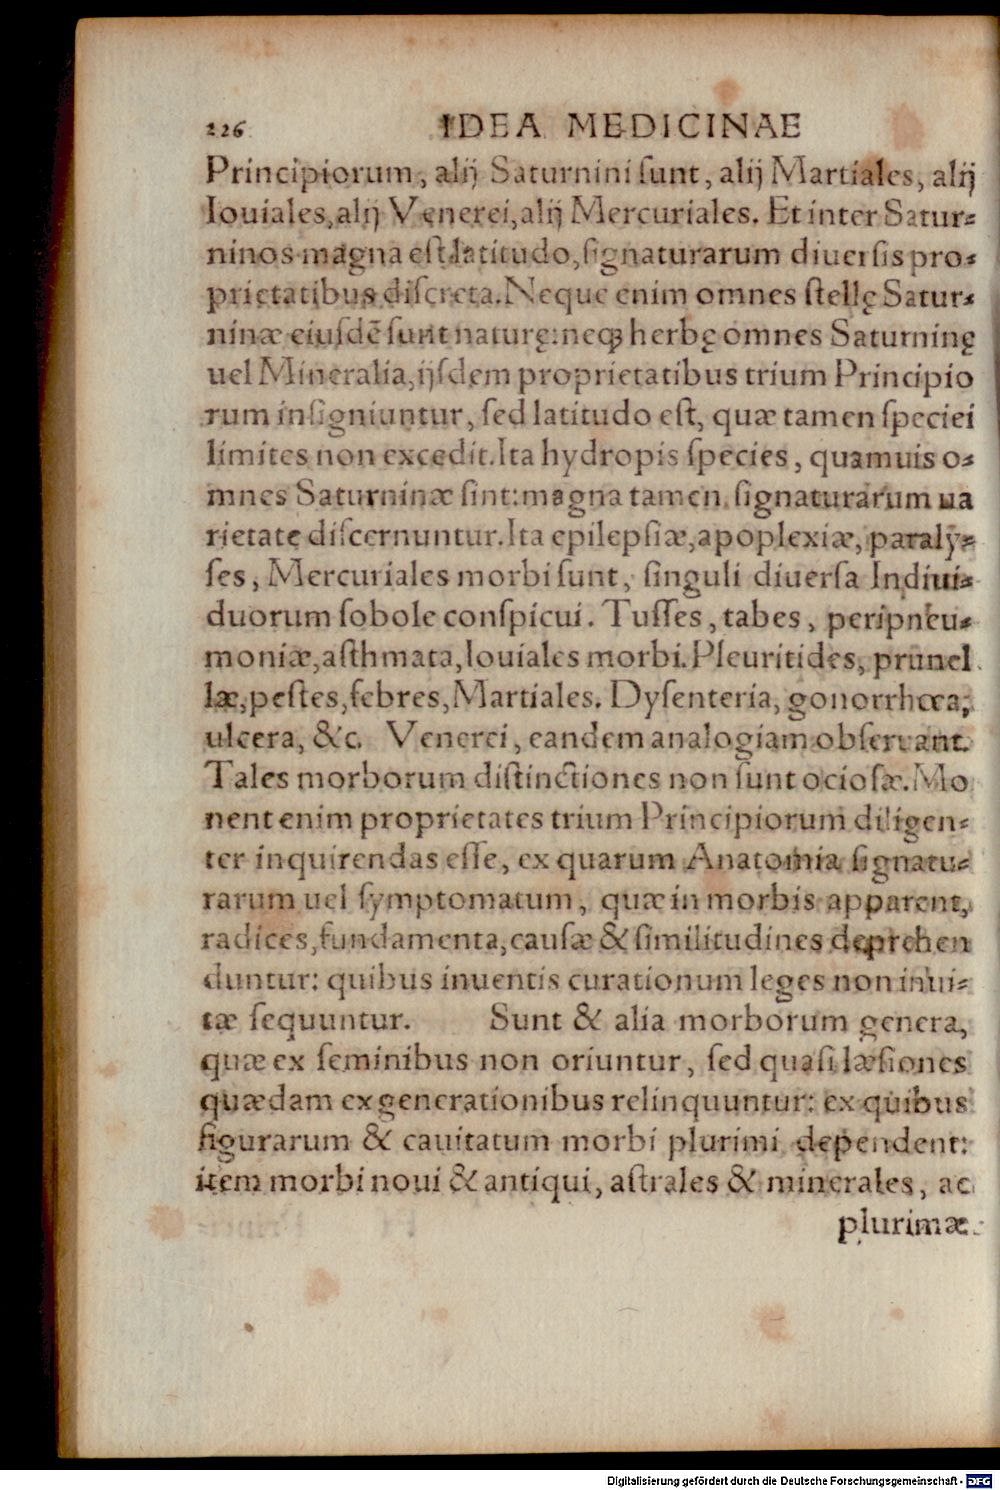 226 IDEA MEDICINAE
Principiorum, alij Saturnini ſunt, alij Martiales, alij
Iouiales, alij Venerei, alij Mercuriales. Et inter Satur-
ninos magna eſt latitudo, ſignaturarum diuerſis pro-
prietatibus diſcreta. Neque enim omnes ſtellę Satur-
ninæ eiuſdē ſunt naturę: neqȝ herbę omnes Saturninę
uel Mineralia, ijſdem proprietatibus trium Principio
rum inſigniuntur, ſed latitudo eſt, quæ tamen ſpeciei
limites non excedit. Ita hydropis ſpecies, quamuis o-
mnes Saturninæ ſint: magna tamen ſignaturarum ua
rietate diſcernuntur. Ita epilepſiæ, apoplexiæ, paraly-
ſes, Mercuriales morbi ſunt, ſinguli diuerſa Indiui-
duorum ſobole conſpicui. Tuſſes, tabes, peripneu-
moniæ, aſthmata, Iouiales morbi. Pleuritides, prunel
læ, peſtes, febres, Martiales. Dyſenteria, gonorrhœa,
ulcera, &c. Venerei, eandem analogiam obſeruant.
Tales morborum diſtinctiones non ſunt ocioſæ. Mo
nent enim proprietates trium Principiorum diligen-
ter inquirendas eſſe, ex quarum Anatomia ſignatu-
rarum uel ſymptomatum, quæ in morbis apparent,
radices, fundamenta, cauſæ & ſimilitudines deprehen
duntur: quibus inuentis curationum leges non inui-
tæ ſequuntur. Sunt & alia morborum genera,
quæ ex ſeminibus non oriuntur, ſed quaſi læſiones
quædam ex generationibus relinquuntur: ex quibus
figurarum & cauitatum morbi plurimi dependent:
item morbi noui & antiqui, aſtrales & minerales, ac
plurimæ
Digitalisierung gefördert durch die Deutsche Forschungsgemeinschaft - DFG